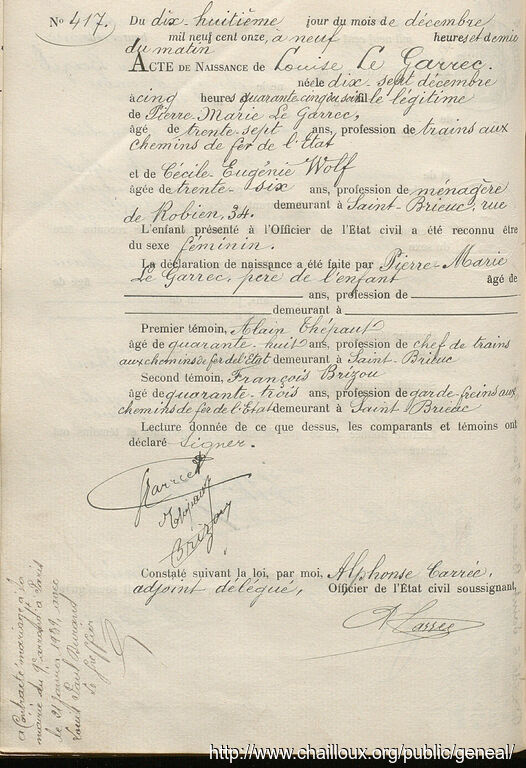 N° 417.
Du dix-huitième jour du mois de décembre
mil neuf cent onze, à neuf heures et demie
du matin
ACTE DE NAISSANCE de Louise Le Garrec.
né e le dix-sept décembre
à cinq heures quarante-cinq du soir fille légitime
de Pierre-Marie Le Garrec,
âgé de trente-sept ans, profession de trains aux
chemins de fer de l'Etat
et de Cécile-Eugénie Wolf
âgée de trente-six ans, profession de ménagère
demeurant à Saint-Brieuc, rue
de Robien, 34.
L'enfant présenté à l'Officier de l'Etat civil a été reconnu être
du sexe féminin.
La déclaration de naissance a été faite par Pierre-Marie
Le Garrec, père de l'enfant âgé de
ans, profession de
demeurant à
Premier témoin, Alain Thépaut
âgé de quarante-huit ans, profession de chef de trains
aux chemins de fer de l'Etat demeurant à Saint-Brieuc
Second témoin, François Brizou
âgé de quarante-trois ans, profession de garde-freins aux
chemins de fer de l'Etat demeurant à Saint Brieuc
Lecture donnée de ce que dessus, les comparants et témoins ont
déclaré signer.
Garrec
Thépaut
Brizou
Constaté suivant la loi, par moi, Alphonse Carrée,
adjoint délégué, Officier de l'Etat civil soussigné,
a Contracté mariage à la
mairie du 9e arrond. à Paris
le 21 janvier 1939, avec
Louis Paul
Le Greffier
http://www.chailloux.org/public/geneal/